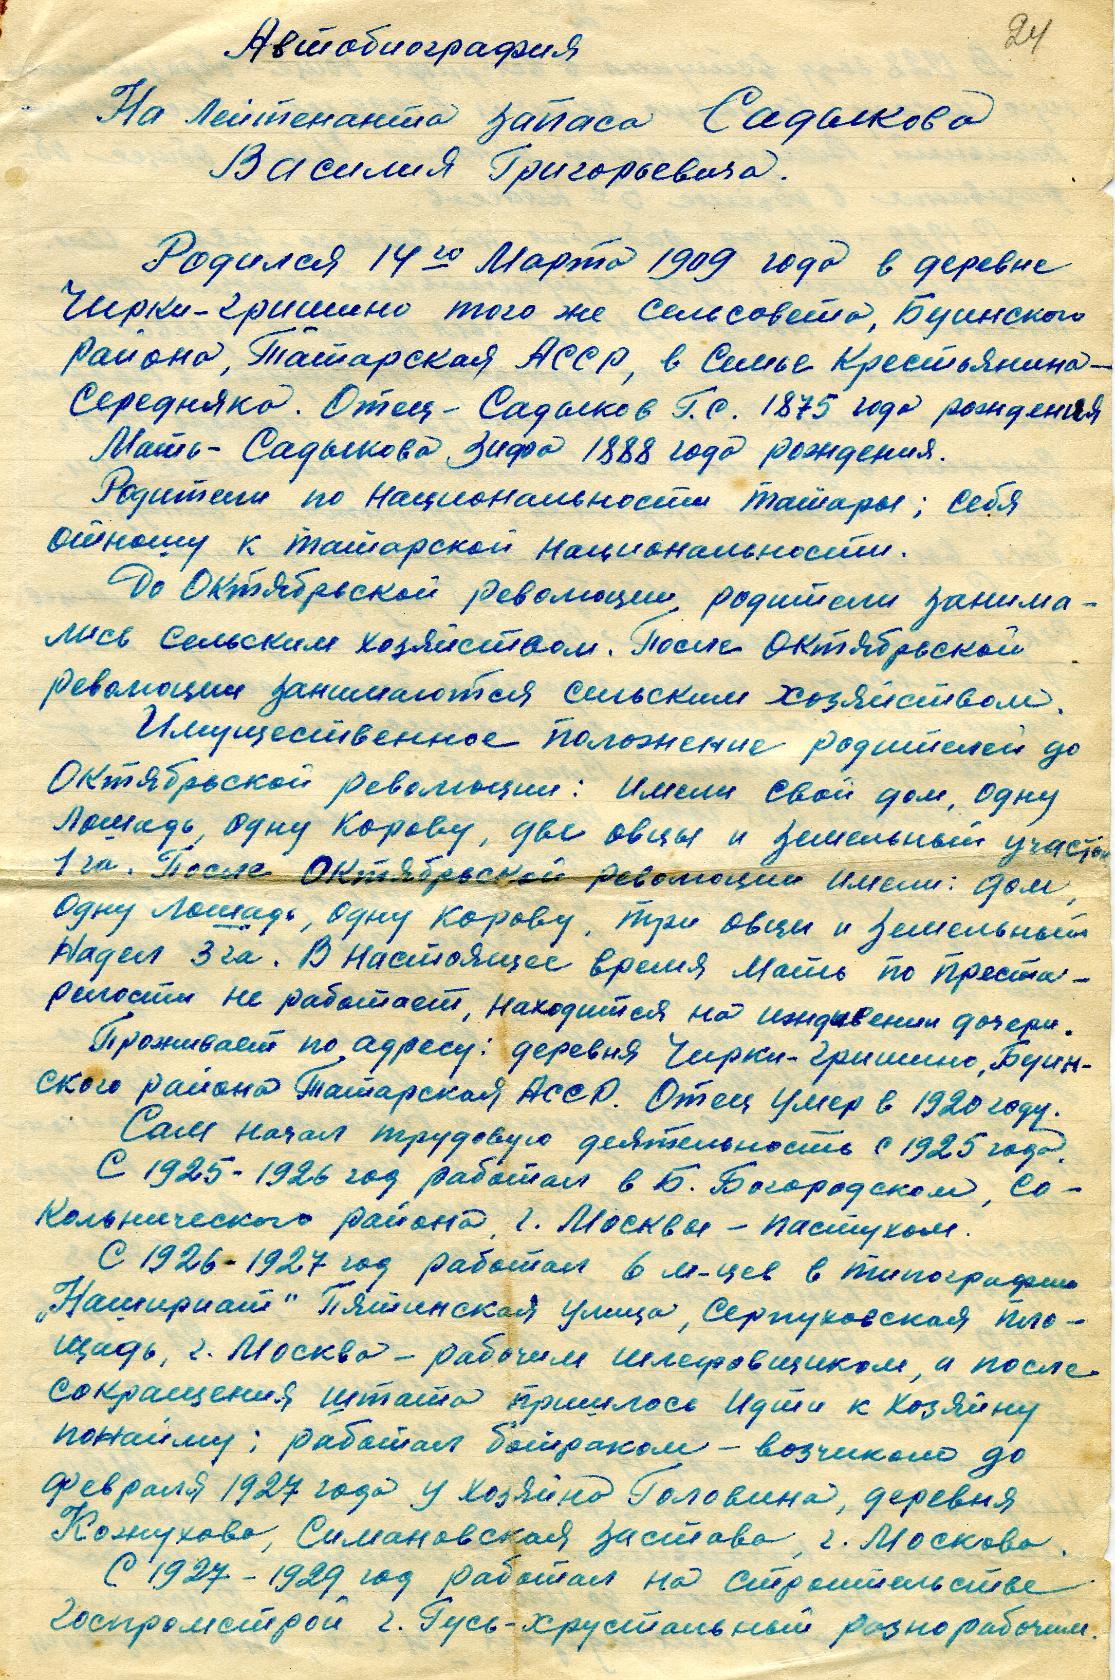 24
Автобиография
На лейтенанта запаса Садыкова
Василия Григорьевича.
Родился 14го Марта 1909 года в деревне
Чирки-Гришино того же сельсовета, Буинского
района, Татарская АССР, в семье Крестьянина-
Середняка. Отец - Садыков Г.С. 1875 года рождения
Мать - Садыкова Зифа 1888 года рождения.
Родители по национальности татары; себя
отношу к татарской национальности.
До Октябрьской революции родители занима-
лись сельским хозяйством. После Октябрьской
революции занимаются сельским хозяйством.
Имущественное положение родителей до
Октябрьской революции: имели свой дом, одну
лошадь, одну корову, две овцы и земельный участок
1 га. После Октябрьской революции имели: дом,
одну лошадь, одну корову, три овцы и земельный
надел 3 га. В настоящее время мать по преста-
релости не работает, находится на иждивении дочери.
Проживает по адресу: деревня Чирки-Гришино, Буин-
ского района Татарская АССР. Отец умер в 1920 году.
Сам начал трудовую деятельность с 1925 года.
С 1925-1926 год работал в Б. Богородском, Со-
кольнического района, г. Москвы - пастухом.
С 1926-1927 год работал 6 м-цев в типографии
Пятинская улица, Серпуховская пло-
щадь, г. Москва - рабочим шлифовщиком, а после
сокращения штата пришлось идти к хозяину
понайму; работал батраком - возчиком до
февраля 1927 года у хозяина Головина, деревня
Кожухово, Симановская застава, г. Москова.
С 1927 - 1929 год работал на строительстве
Госпромстрой г. Гусь-хрустальный разнорабочим.